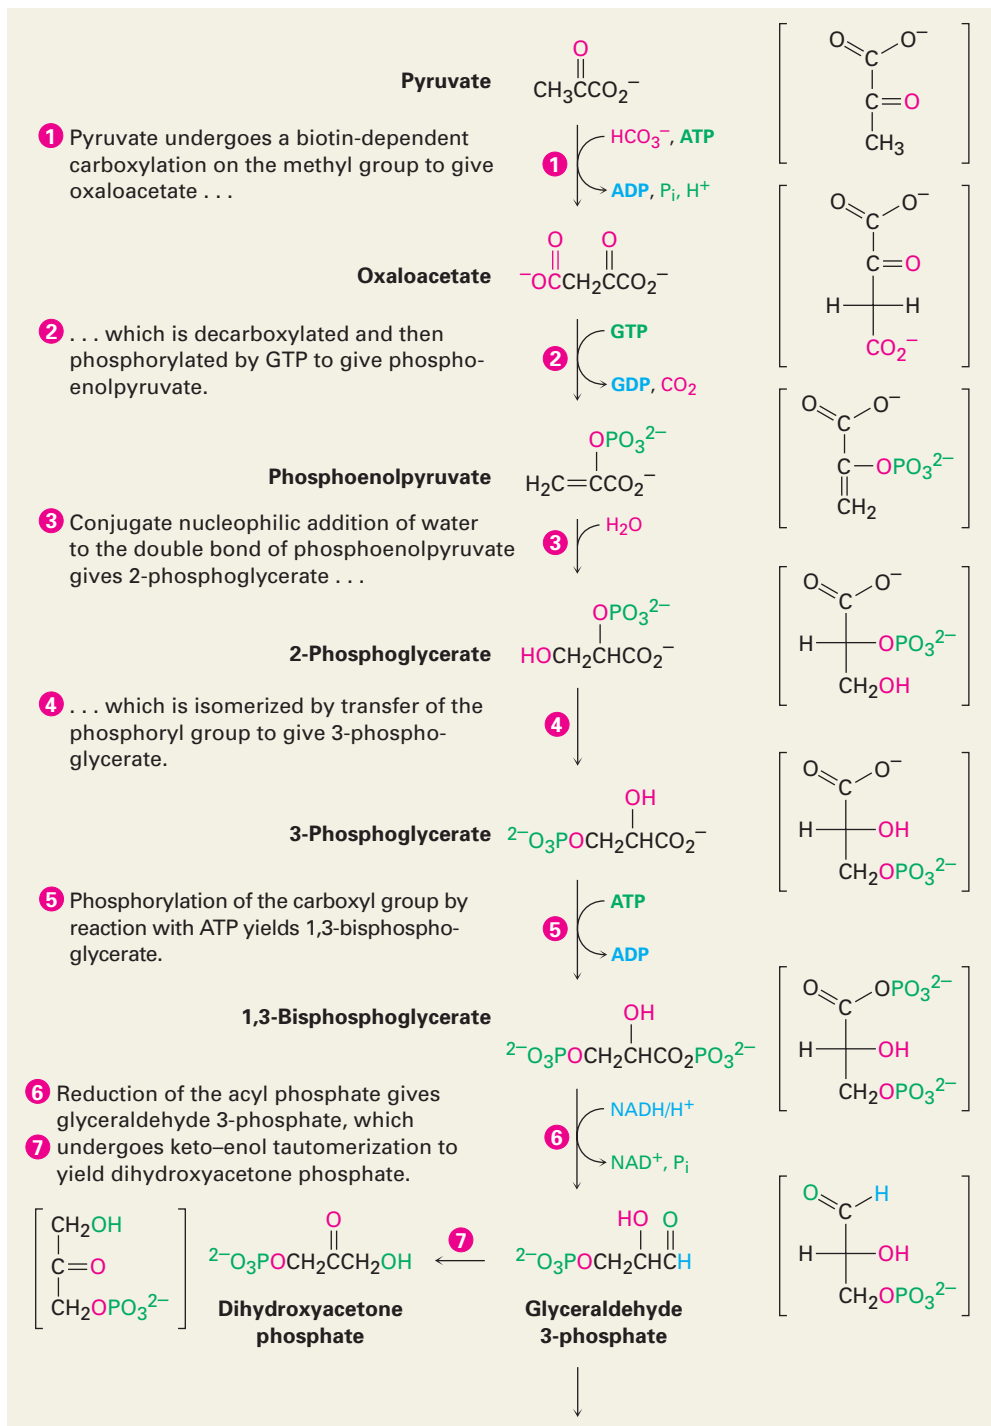 Pyruvate
O
CH₃CCO₂⁻
O O⁻
C
C=O
CH₃
1 Pyruvate undergoes a biotin-dependent
carboxylation on the methyl group to give
oxaloacetate . . .
1
HCO₃⁻, ATP
ADP, Pᵢ, H⁺
Oxaloacetate
O O
⁻OCCH₂CCO₂⁻
O O⁻
C
C=O
H H
CO₂⁻
2 . . . which is decarboxylated and then
phosphorylated by GTP to give phospho-
enolpyruvate.
2
GTP
GDP, CO₂
Phosphoenolpyruvate
OPO₃²⁻
H₂C=CCO₂⁻
O O⁻
C
C—OPO₃²⁻
CH₂
3 Conjugate nucleophilic addition of water
to the double bond of phosphoenolpyruvate
gives 2-phosphoglycerate . . .
3
H₂O
2-Phosphoglycerate
OPO₃²⁻
HOCH₂CHCO₂⁻
O O⁻
C
H OPO₃²⁻
CH₂OH
4 . . . which is isomerized by transfer of the
phosphoryl group to give 3-phospho-
glycerate.
4
3-Phosphoglycerate
OH
²⁻O₃POCH₂CHCO₂⁻
O O⁻
C
H OH
CH₂OPO₃²⁻
5 Phosphorylation of the carboxyl group by
reaction with ATP yields 1,3-bisphospho-
glycerate.
5
ATP
ADP
1,3-Bisphosphoglycerate
OH
²⁻O₃POCH₂CHCO₂PO₃²⁻
O OPO₃²⁻
C
H OH
CH₂OPO₃²⁻
6 Reduction of the acyl phosphate gives
glyceraldehyde 3-phosphate, which
7 undergoes keto–enol tautomerization to
yield dihydroxyacetone phosphate.
6
NADH/H⁺
NAD⁺, Pᵢ
CH₂OH
C=O
CH₂OPO₃²⁻
O
²⁻O₃POCH₂CCH₂OH
Dihydroxyacetone
phosphate
7
HO O
²⁻O₃POCH₂CHCH
Glyceraldehyde
3-phosphate
O H
C
H OH
CH₂OPO₃²⁻